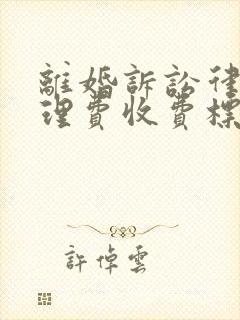 離婚訴訟律
理費收費標
許倬雲